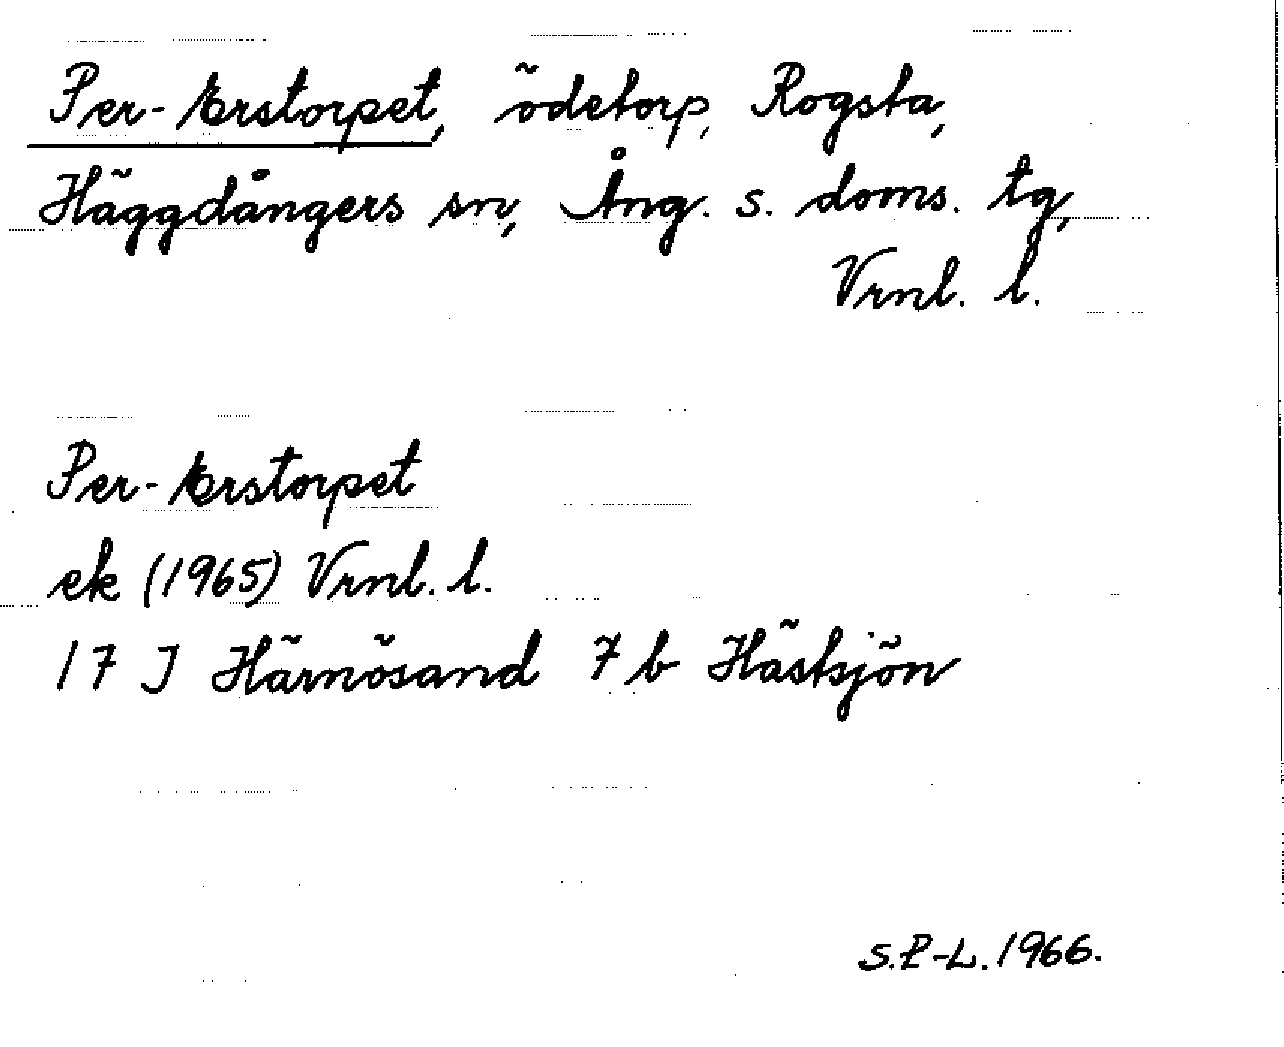 Per-Erstorpet, ödetorp, Rogsta,
Häggdångers sn, Ång. s. doms. tg,
Vrnl. l.
Per-Erstorpet
ek (1965) Vrnl. l.
17 J Härnösand 7 b Hästsjön
S.P-L. 1966.